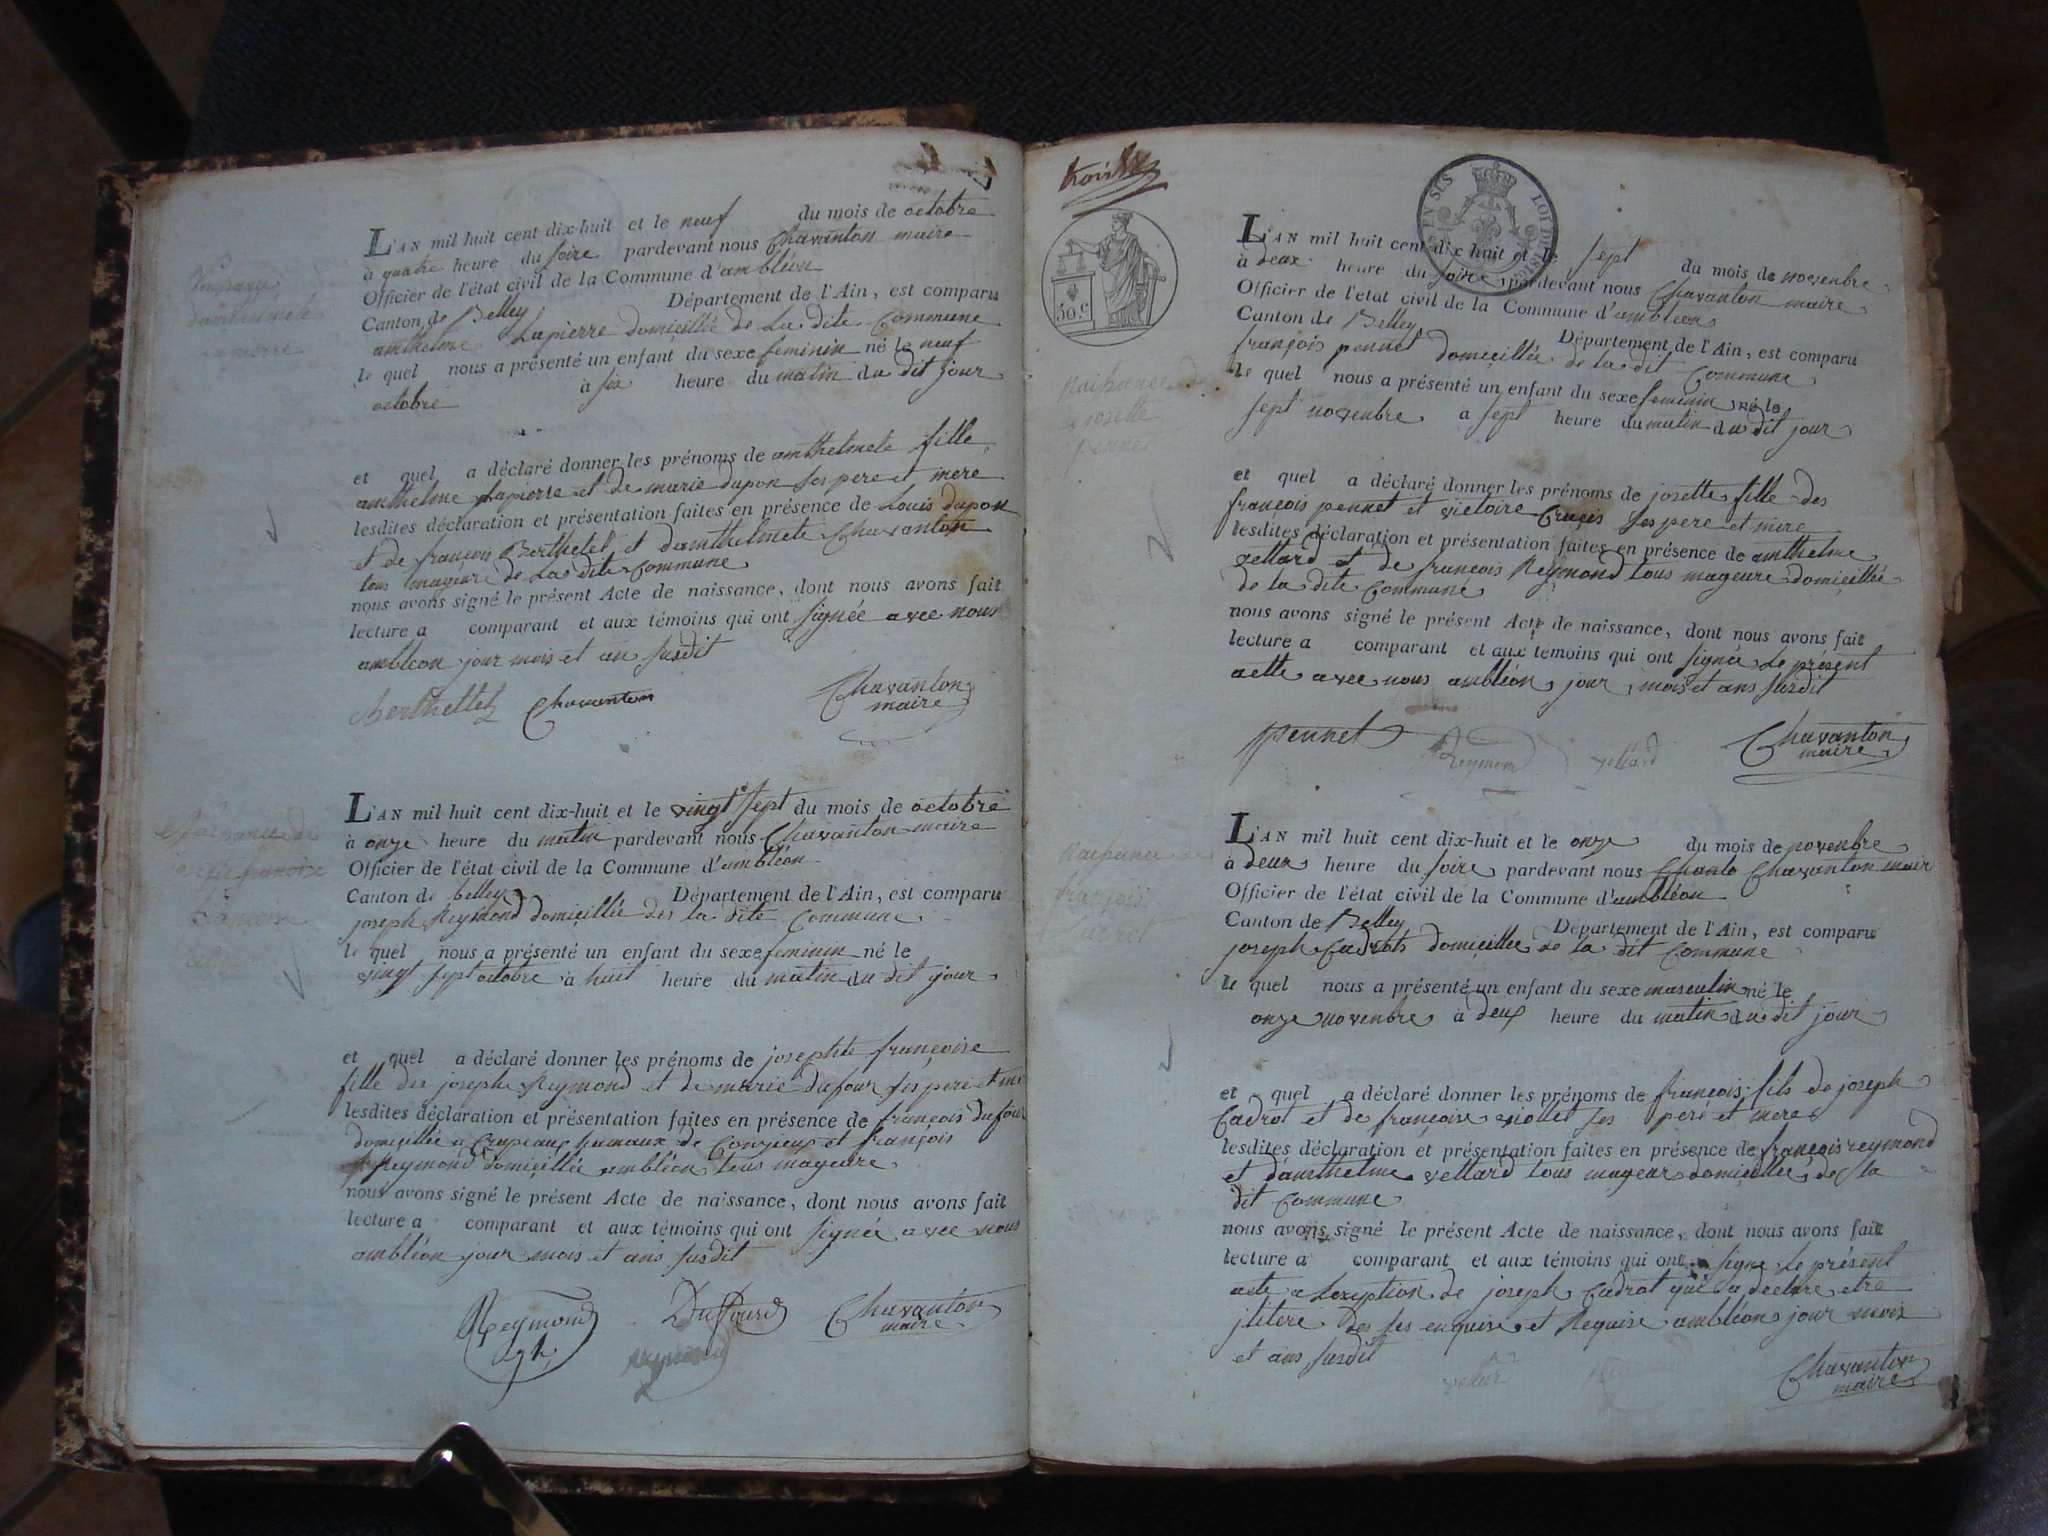 L'AN mil huit cent dix-huit et le neuf du mois de octobre
à quatre heure du soire pardevant nous Chavanton maire
Officier de l'état civil de la Commune d'ambléon
Canton de Belley Département de l'Ain, est comparu
anthelme Lapierre domicillée de La dite Commune
le quel nous a présenté un enfant du sexe feminin né le neuf
octobre à six heure du matin du dit jour
et quel a déclaré donner les prénoms de anthelmete fille
anthelme Lapierre et de marie dupon ses pere et mere
lesdites déclaration et présentation faites en présence de Louis dupon
et de françois Berthelet et danthelmete Chavanton
tous mageure de La dite Commune
nous avons signé le présent Acte de naissance, dont nous avons fait
lecture a comparant et aux témoins qui ont signée avec nous
ambléon jour mois et an susdit
Berthellet Chavanton Chavanton
maire
Naisance
danthelmete
Lapierre
L'AN mil huit cent dix-huit et le vingt sept du mois de octobre
à onze heure du matin pardevant nous Chavanton maire
Officier de l'état civil de la Commune d'ambléon
Canton de belley Département de l'Ain, est comparu
joseph Reymond domicillée des la dite Commune
le quel nous a présenté un enfant du sexe feminin né le
vingt sept octobre à huit heure du matin du dit jour
et quel a déclaré donner les prénoms de josephte françoise
fille des joseph Reymond et de marie dufour ses pere et
lesdites déclaration et présentation faites en présence de françois dufour
domicillée a hamaux de et françois
Reymond domicillée ambléon tous mageure
nous avons signé le présent Acte de naissance, dont nous avons fait
lecture a comparant et aux témoins qui ont signée avec nous
ambléon jour mois et ans susdit
Reymond Duffourd Chavanton
maire
Naisance de
françoise
troisse
EN SUS LOI DE 1816
50.C
L'AN mil huit cent dix-huit et le sept du mois de novenbre
à deux heure du soire pardevant nous Chavanton maire
Officier de l'état civil de la Commune d'ambléon
Canton de Belley Département de l'Ain, est comparu
françois pennet domicillée de la dit Commune
le quel nous a présenté un enfant du sexe feminin né le
sept novenbre a sept heure du matin du dit jour
et quel a déclaré donner les prénoms de josette fille des
françois pennet et victoire ses pere et mere
lesdites déclaration et présentation faites en présence de anthelme
vettard et de françois Reymond tous mageure domicillée
de la dite Commune
nous avons signé le présent Acte de naissance, dont nous avons fait
lecture a comparant et aux témoins qui ont signée Le présent
actte avec nous ambléon jour, mois et ans susdit
pennet Reymond vettard Chavanton
maire
Naisance de
josette
pennet
L'AN mil huit cent dix-huit et le onze du mois de novenbre
à deux heure du soire pardevant nous Chanto Chavanton mair
Officier de l'état civil de la Commune d'ambléon
Canton de Belley Département de l'Ain, est comparu
joseph Cadrot domicillée de la dit Commune
le quel nous a présenté un enfant du sexe masculin né le
onze novenbre à deux heure du matin du dit jour
et quel a déclaré donner les prénoms de françois fils de joseph
Cadrot et de françoise ses pere et mere
lesdites déclaration et présentation faites en présence de françois reymond
et danthelme vettard tous mageur domicillée de la
dit Commune
nous avons signé le présent Acte de naissance, dont nous avons fait
lecture a comparant et aux témoins qui ont signe Le présent
acte a Lexeption de joseph Cadrot qui a declare etre
jlitere des ses enquise et Requise ambléon jour mois
et ans susdit
Chavanton
maire
Naisance de
françois